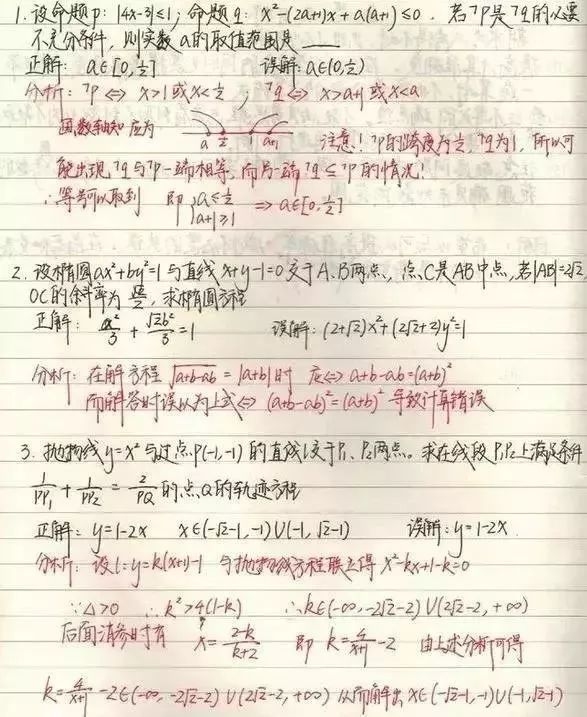 1. 设命题p: |4x-3|≤1; 命题q: x²-(2a+1)x+a(a+1)≤0. 若¬p是¬q的必要
不充分条件, 则实数a的取值范围是____
正解: a∈[0,½] 误解: a∈(0,½)
分析: ¬p⇔x>1或x<½; ¬q⇔x>a+1或x<a
因数轴知应为 a ½ 1 a+1 注意!¬p的跨度为½,¬q为1, 所以可
能出现¬q与¬p一端相等, 而另一端¬q≤¬p的情况!
∴等号可以取到 即 {a≤½ a+1≥1 ⇒ a∈[0,½]
2. 设椭圆ax²+by²=1与直线x+y-1=0交于A、B两点, 点C是AB中点,若|AB|=2√2,
OC的斜率为√2/2, 求椭圆方程
正解: x²/3 + √2b²/3 =1 误解: (2+√2)x²+(2√2+2)y²=1
分析: 在解方程 √a+b-ab = |a+b|时 应⇔ a+b-ab=(a+b)²
而解答时误以为上式⇔ (a+b-ab)²=(a+b)² 导致计算错误
3. 抛物线y=x²与过点P(-1,-1)的直线l交于P₁、P₂两点。求在线段P₁P₂上满足条件
1/PP₁ + 1/PP₂ = 2/PQ 的点Q的轨迹方程
正解: y=1-2x x∈(-√2-1,-1)∪(-1,√2-1) 误解: y=1-2x
分析: 设l:y=k(x+1)-1 与抛物线方程联立得 x²-kx+1-k=0
∵△>0 ∴k²>4(1-k) ∴k∈(-∞,-2√2-2)∪(2√2-2,+∞)
后面消参时有 x=2-k/k+2 即 k=4/x+1 -2 由上述分析可得
k=4/x+1 -2∈(-∞,-2√2-2)∪(2√2-2,+∞) 从而解出 x∈(-√2-1,-1)∪(-1,√2-1)